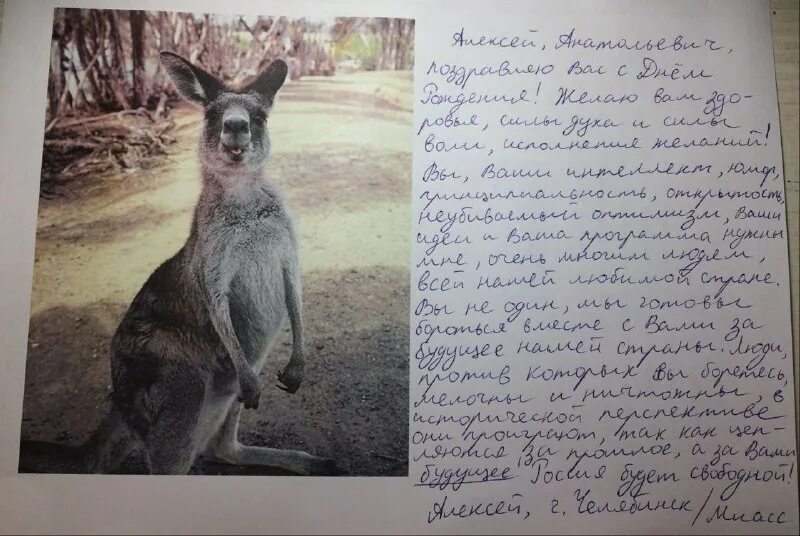 Алексей, Анатольевич,
поздравляю Вас с Днём
Рождения! Желаю вам здо-
ровья, силы духа и силы
воли, исполнения желаний!
Вы, Ваши интеллект, юмор,
принципиальность, открытость,
неубиваемый оптимизм, Ваши
идеи и Ваша программа нужны
мне, очень многим людям,
всей нашей любимой стране.
Вы не один, мы готовы
бороться вместе с Вами за
будущее нашей страны. Люди,
против которых Вы боретесь,
мелочны и ничтожны, в
исторической перспективе
они проиграют, так как цеп-
ляются за прошлое, а за Вами
будущее! Россия будет свободной!
Алексей, г. Челябинск/Миасс